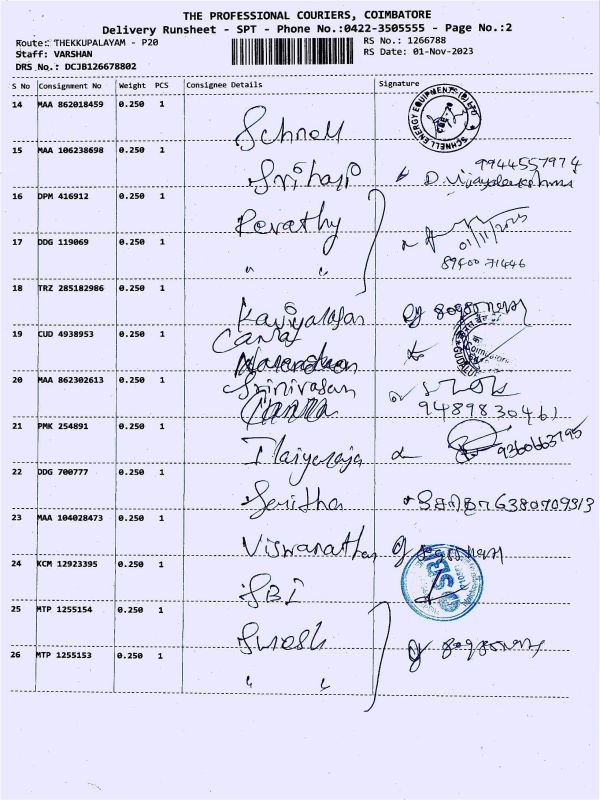 THE PROFESSIONAL COURIERS, COIMBATORE
Delivery Runsheet - SPT - Phone No.:0422-3505555 - Page No.:2
Route: THEKKUPALAYAM - P20
RS No.: 1266788
Staff: VARSHAN
RS Date: 01-Nov-2023
DRS No.: DCJB126678802
S No Consignment No Weight PCS Consignee Details Signature
14 MAA 862018459 0.250 1 Schnell
SCHNELL ENERGY EQUIPMENTS (P) LTD
15 MAA 106238698 0.250 1 Srihari 9944557974
16 DPM 416912 0.250 1 Revathy
01/11/2023
17 DDG 119069 0.250 1 " " 89400 71446
18 TRZ 285182986 0.250 1 Kaviyarasan
19 CUD 4938953 0.250 1 Canara
20 MAA 862302613 0.250 1 Srinivasan
9489830461
21 PMK 254891 0.250 1 Ilaiyaraja 9360663795
22 DDG 700777 0.250 1 Saritha 6380709313
23 MAA 104028473 0.250 1 Viswanathan
24 KCM 12923395 0.250 1 SBI
25 MTP 1255154 0.250 1 Suresh
26 MTP 1255153 0.250 1 " "